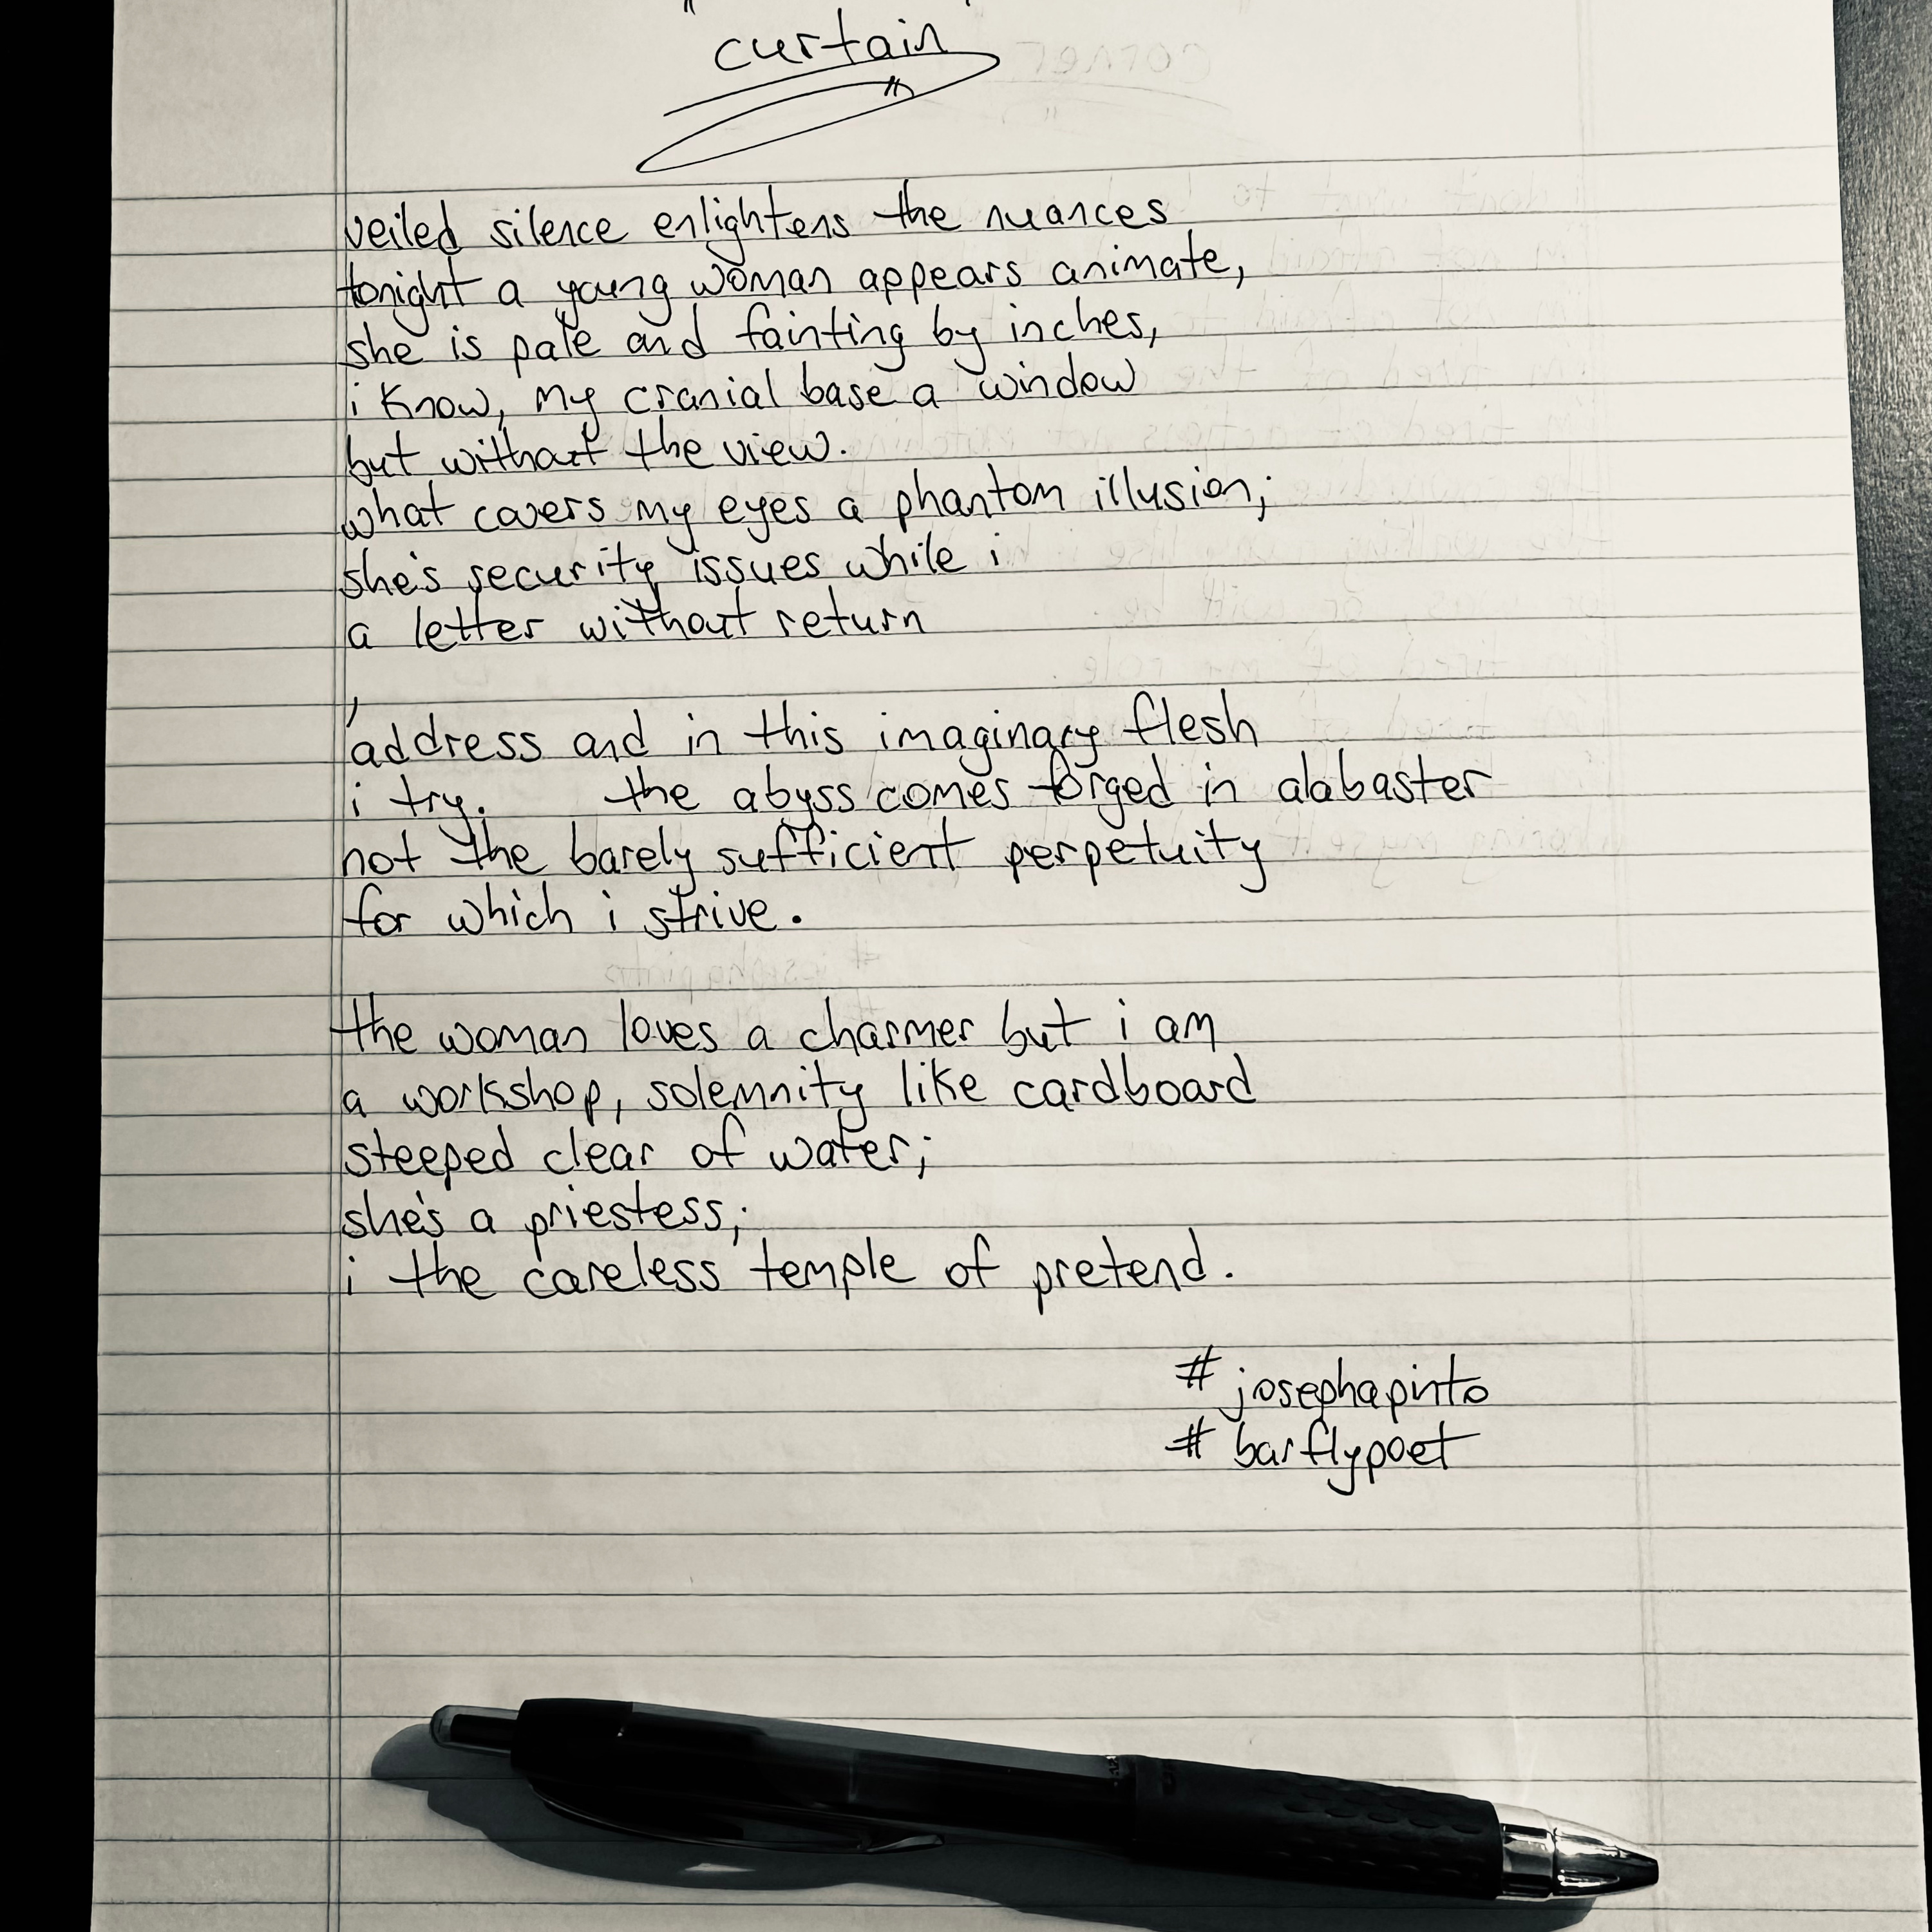 "curtain"
veiled silence enlightens the nuances
tonight a young woman appears animate,
she is pale and fainting by inches,
i know, my cranial base a window
but without the view.
what covers my eyes a phantom illusion;
she's security issues while i
a letter without return
address and in this imaginary flesh
i try. the abyss comes forged in alabaster
not the barely sufficient perpetuity
for which i strive.
the woman loves a charmer but i am
a workshop, solemnity like cardboard
steeped clear of water;
she's a priestess;
i the careless temple of pretend.
#josephapinto
#barflypoet